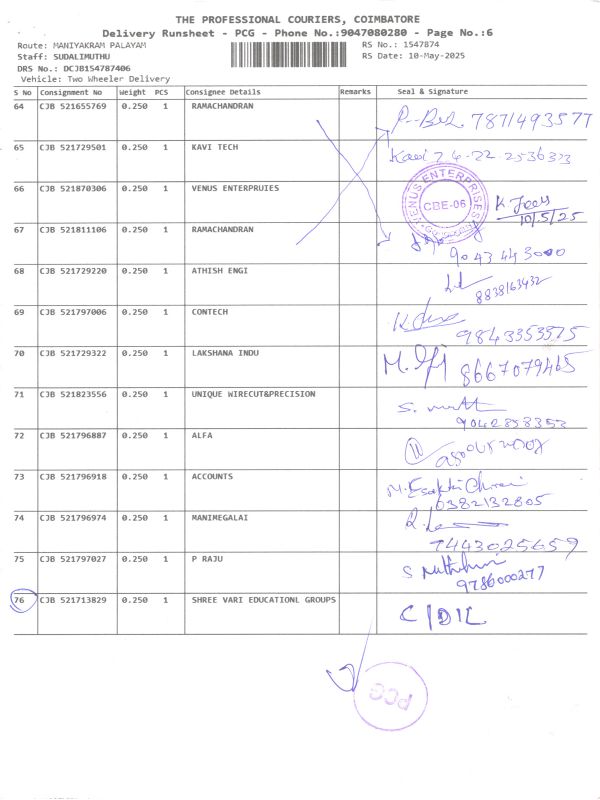 THE PROFESSIONAL COURIERS, COIMBATORE
Delivery Runsheet - PCG - Phone No.:9047080280 - Page No.:6
Route: MANIYAKRAM PALAYAM RS No.: 1547874
Staff: SUDALIMUTHU RS Date: 10-May-2025
DRS No.: DCJB154787406
Vehicle: Two Wheeler Delivery
S No Consignment No Weight PCS Consignee Details Remarks Seal & Signature
64 CJB 521655769 0.250 1 RAMACHANDRAN 7871493577
65 CJB 521729501 0.250 1 KAVI TECH Kavi
66 CJB 521870306 0.250 1 VENUS ENTERPRUIES VENUS ENTERPRISES CBE-06 10/5/25
67 CJB 521811106 0.250 1 RAMACHANDRAN 9043443000
68 CJB 521729220 0.250 1 ATHISH ENGI 8838163432
69 CJB 521797006 0.250 1 CONTECH 9843353575
70 CJB 521729322 0.250 1 LAKSHANA INDU 8667079465
71 CJB 521823556 0.250 1 UNIQUE WIRECUT&PRECISION 9042858352
72 CJB 521796887 0.250 1 ALFA
73 CJB 521796918 0.250 1 ACCOUNTS 6382132805
74 CJB 521796974 0.250 1 MANIMEGALAI 7443025659
75 CJB 521797027 0.250 1 P RAJU 9786000277
76 CJB 521713829 0.250 1 SHREE VARI EDUCATIONL GROUPS
PCG